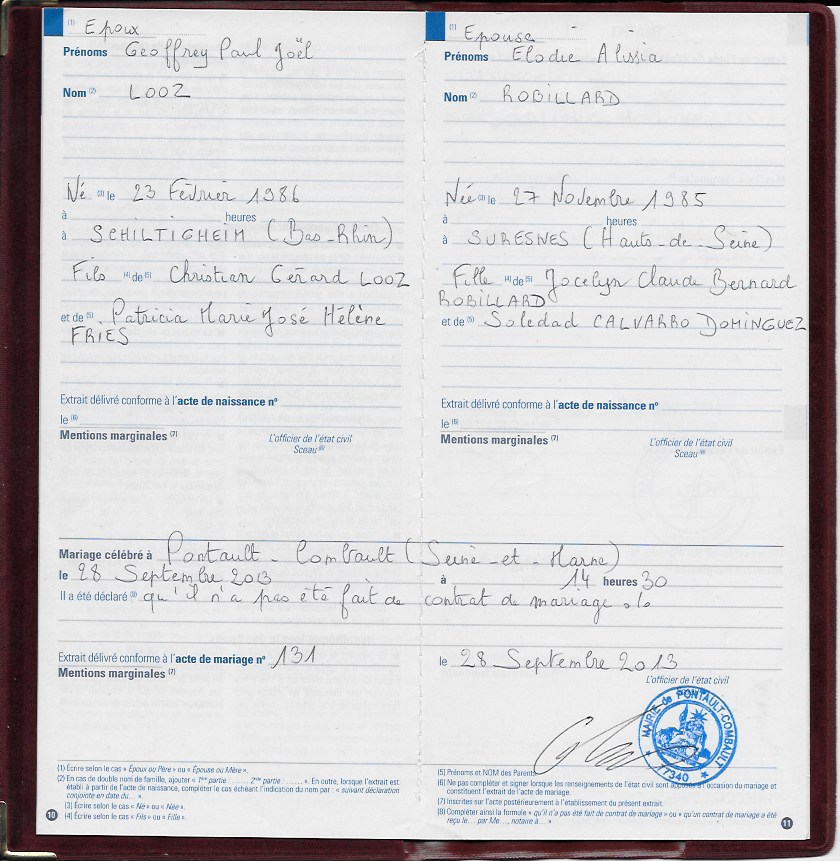 (1) Epoux
Prénoms Geoffrey Paul Joël
Nom (2) LOOZ
Né (3) le 23 Février 1986
à heures
à SCHILTIGHEIM (Bas-Rhin)
Fils (4) de (5) Christian Gérard LOOZ
et de (5) Patricia Marie José Hélène
FRIES
Extrait délivré conforme à l'acte de naissance n°
le (6)
Mentions marginales (7)
L'officier de l'état civil
Sceau (6)
(1) Epouse
Prénoms Elodie Alissia
Nom (2) ROBILLARD
Née (3) le 27 Novembre 1985
à heures
à SURESNES (Hauts-de-Seine)
Fille (4) de (5) Jocelyn Claude Bernard
ROBILLARD
et de (5) Soledad CALVARRO DOMINGUEZ
Extrait délivré conforme à l'acte de naissance n°
le (6)
Mentions marginales (7)
L'officier de l'état civil
Sceau (6)
Mariage célébré à Pontault-Combault (Seine-et-Marne)
le 28 Septembre 2013 à 14 heures 30
Il a été déclaré (8) qu'il n'a pas été fait de contrat de mariage
Extrait délivré conforme à l'acte de mariage n° 131 le 28 Septembre 2013
Mentions marginales (7)
L'officier de l'état civil
MAIRIE de PONTAULT-COMBAULT
77340
(1) Écrire selon le cas « Époux ou Père » ou « Épouse ou Mère ».
(2) En cas de double nom de famille, ajouter « 1ère partie : ...... 2ème partie : ...... ». En outre, lorsque l'extrait est
établi à partir de l'acte de naissance, compléter le cas échéant l'indication du nom par : « suivant déclaration
conjointe en date du... ».
(3) Écrire selon le cas « Né » ou « Née ».
(4) Écrire selon le cas « Fils » ou « Fille ».
10
(5) Prénoms et NOM des Parents
(6) Ne pas compléter et signer lorsque les renseignements de l'état civil sont apposés à l'occasion du mariage et
constituent l'extrait de l'acte de mariage.
(7) Inscrites sur l'acte postérieurement à l'établissement du présent extrait.
(8) Compléter ainsi la formule « qu'il n'a pas été fait de contrat de mariage » ou « qu'un contrat de mariage a été
reçu le... par Me..., notaire à... »
11